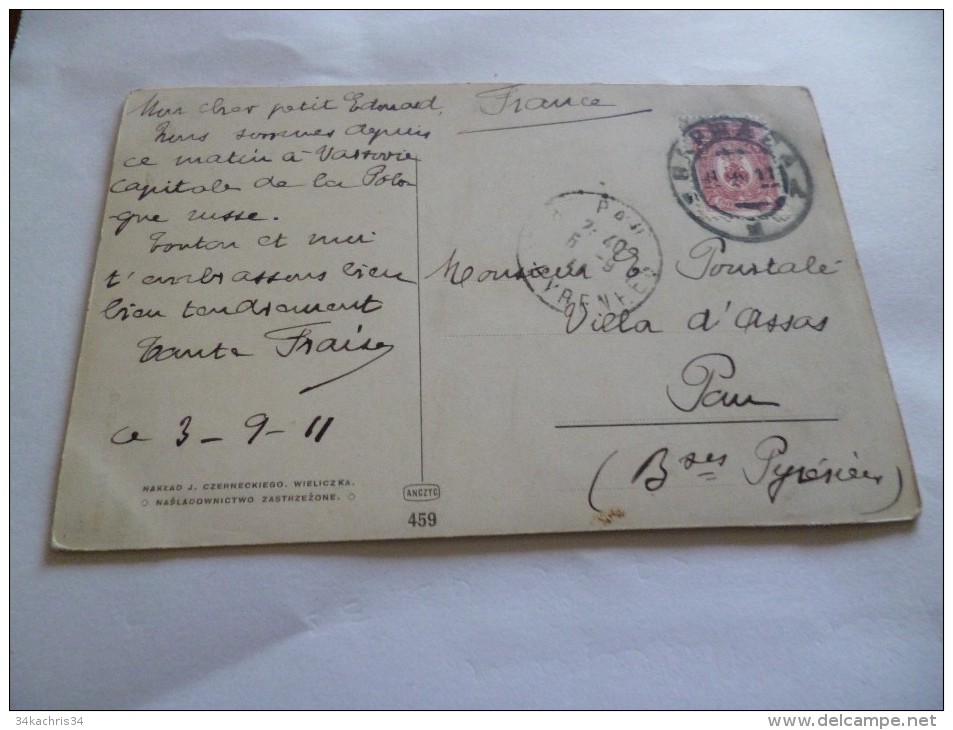 Mon cher petit Edouard,
Nous sommes depuis
ce matin à Varsovie
capitale de la Polo
-gne russe.
Tonton et moi
t'embrassons bien
bien tendrement
Tante Fraise
ce 3-9-11
NAKŁAD J. CZERNECKIEGO. WIELICZKA.
NAŚLADOWNICTWO ZASTRZEŻONE.
ANCZYC
459
France
ВАРШАВА
11
PAU
7:40
5-9
PYRENEES
Monsieur E Pourtalé
Villa d'Assas
Pau
(Bses Pyrénées
34kachris34
www.delcampe.net